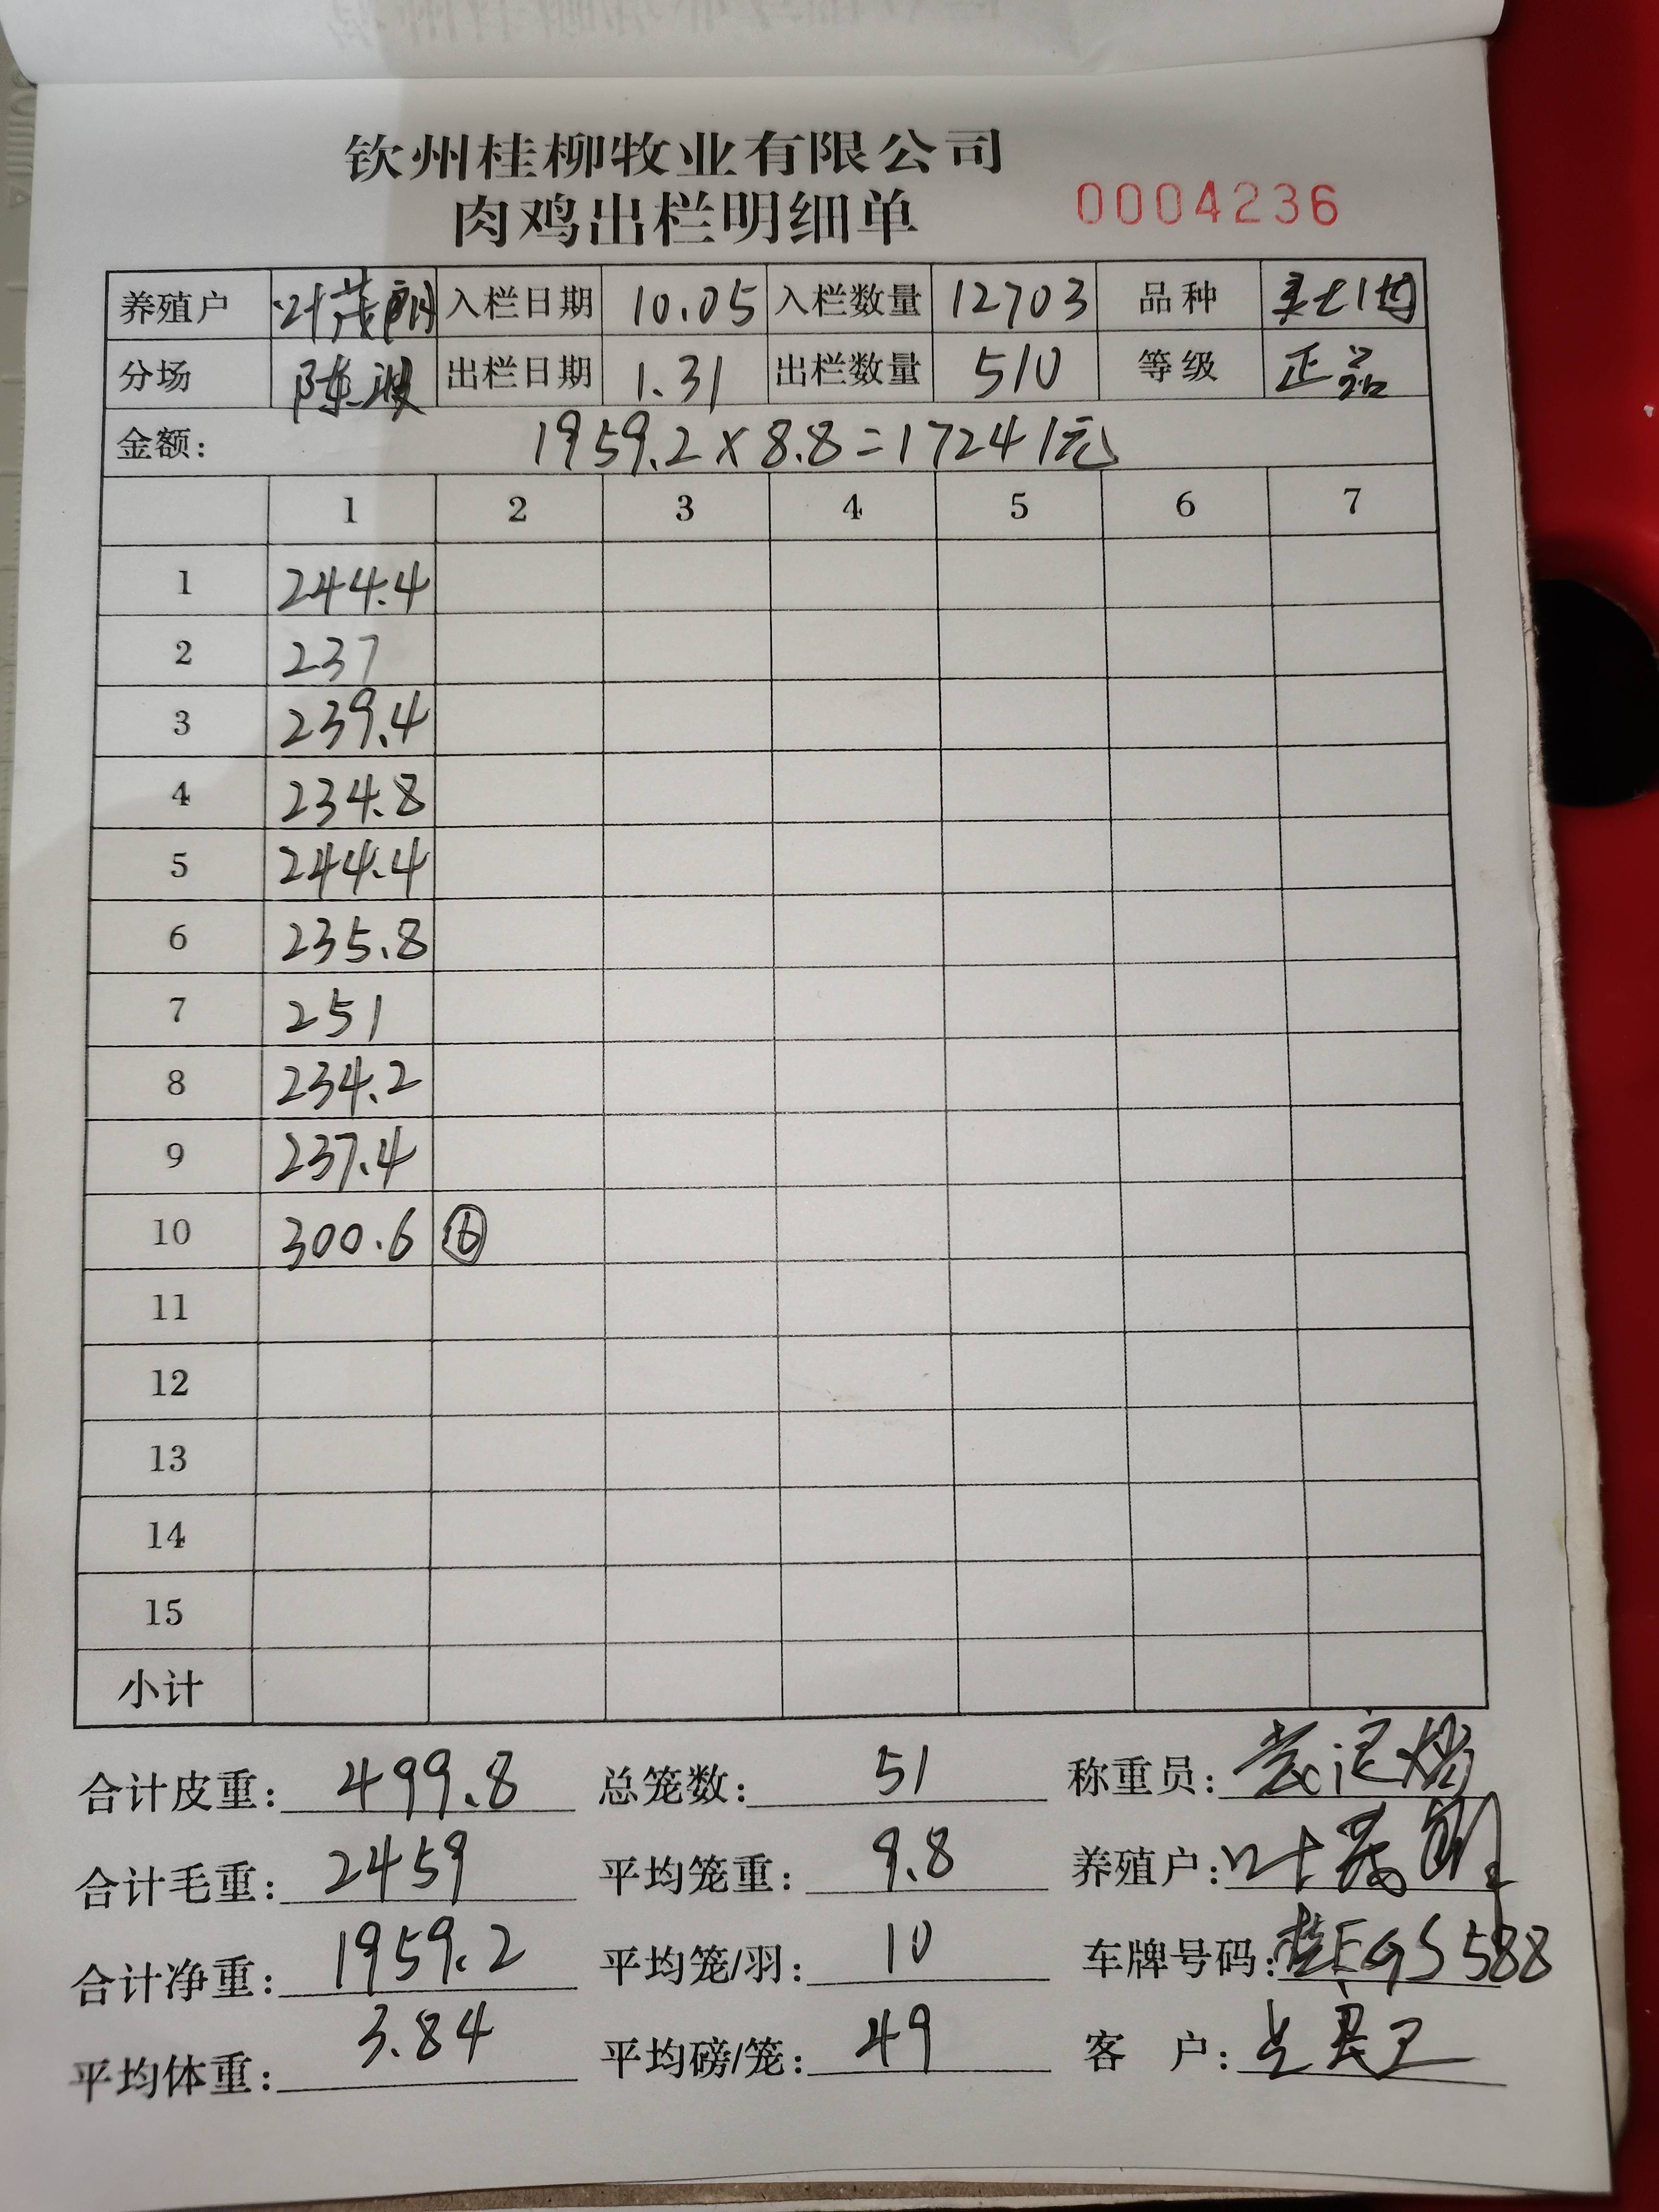 钦州桂柳牧业有限公司
肉鸡出栏明细单 0004236
养殖户 叶茂朗 入栏日期 10.05 入栏数量 12703 品种
分场 陈波 出栏日期 1.31 出栏数量 510 等级 正品
金额: 1959.2×8.8=17241元
1 2 3 4 5 6 7
1 244.4
2 237
3 239.4
4 234.8
5 244.4
6 235.8
7 251
8 234.2
9 237.4
10 300.6 ⑥
11
12
13
14
15
小计
合计皮重: 499.8 总笼数: 51 称重员:
合计毛重: 2459 平均笼重: 9.8 养殖户: 叶茂朗
合计净重: 1959.2 平均笼/羽: 10 车牌号码: EGS588
平均体重: 3.84 平均磅/笼: 49 客户: